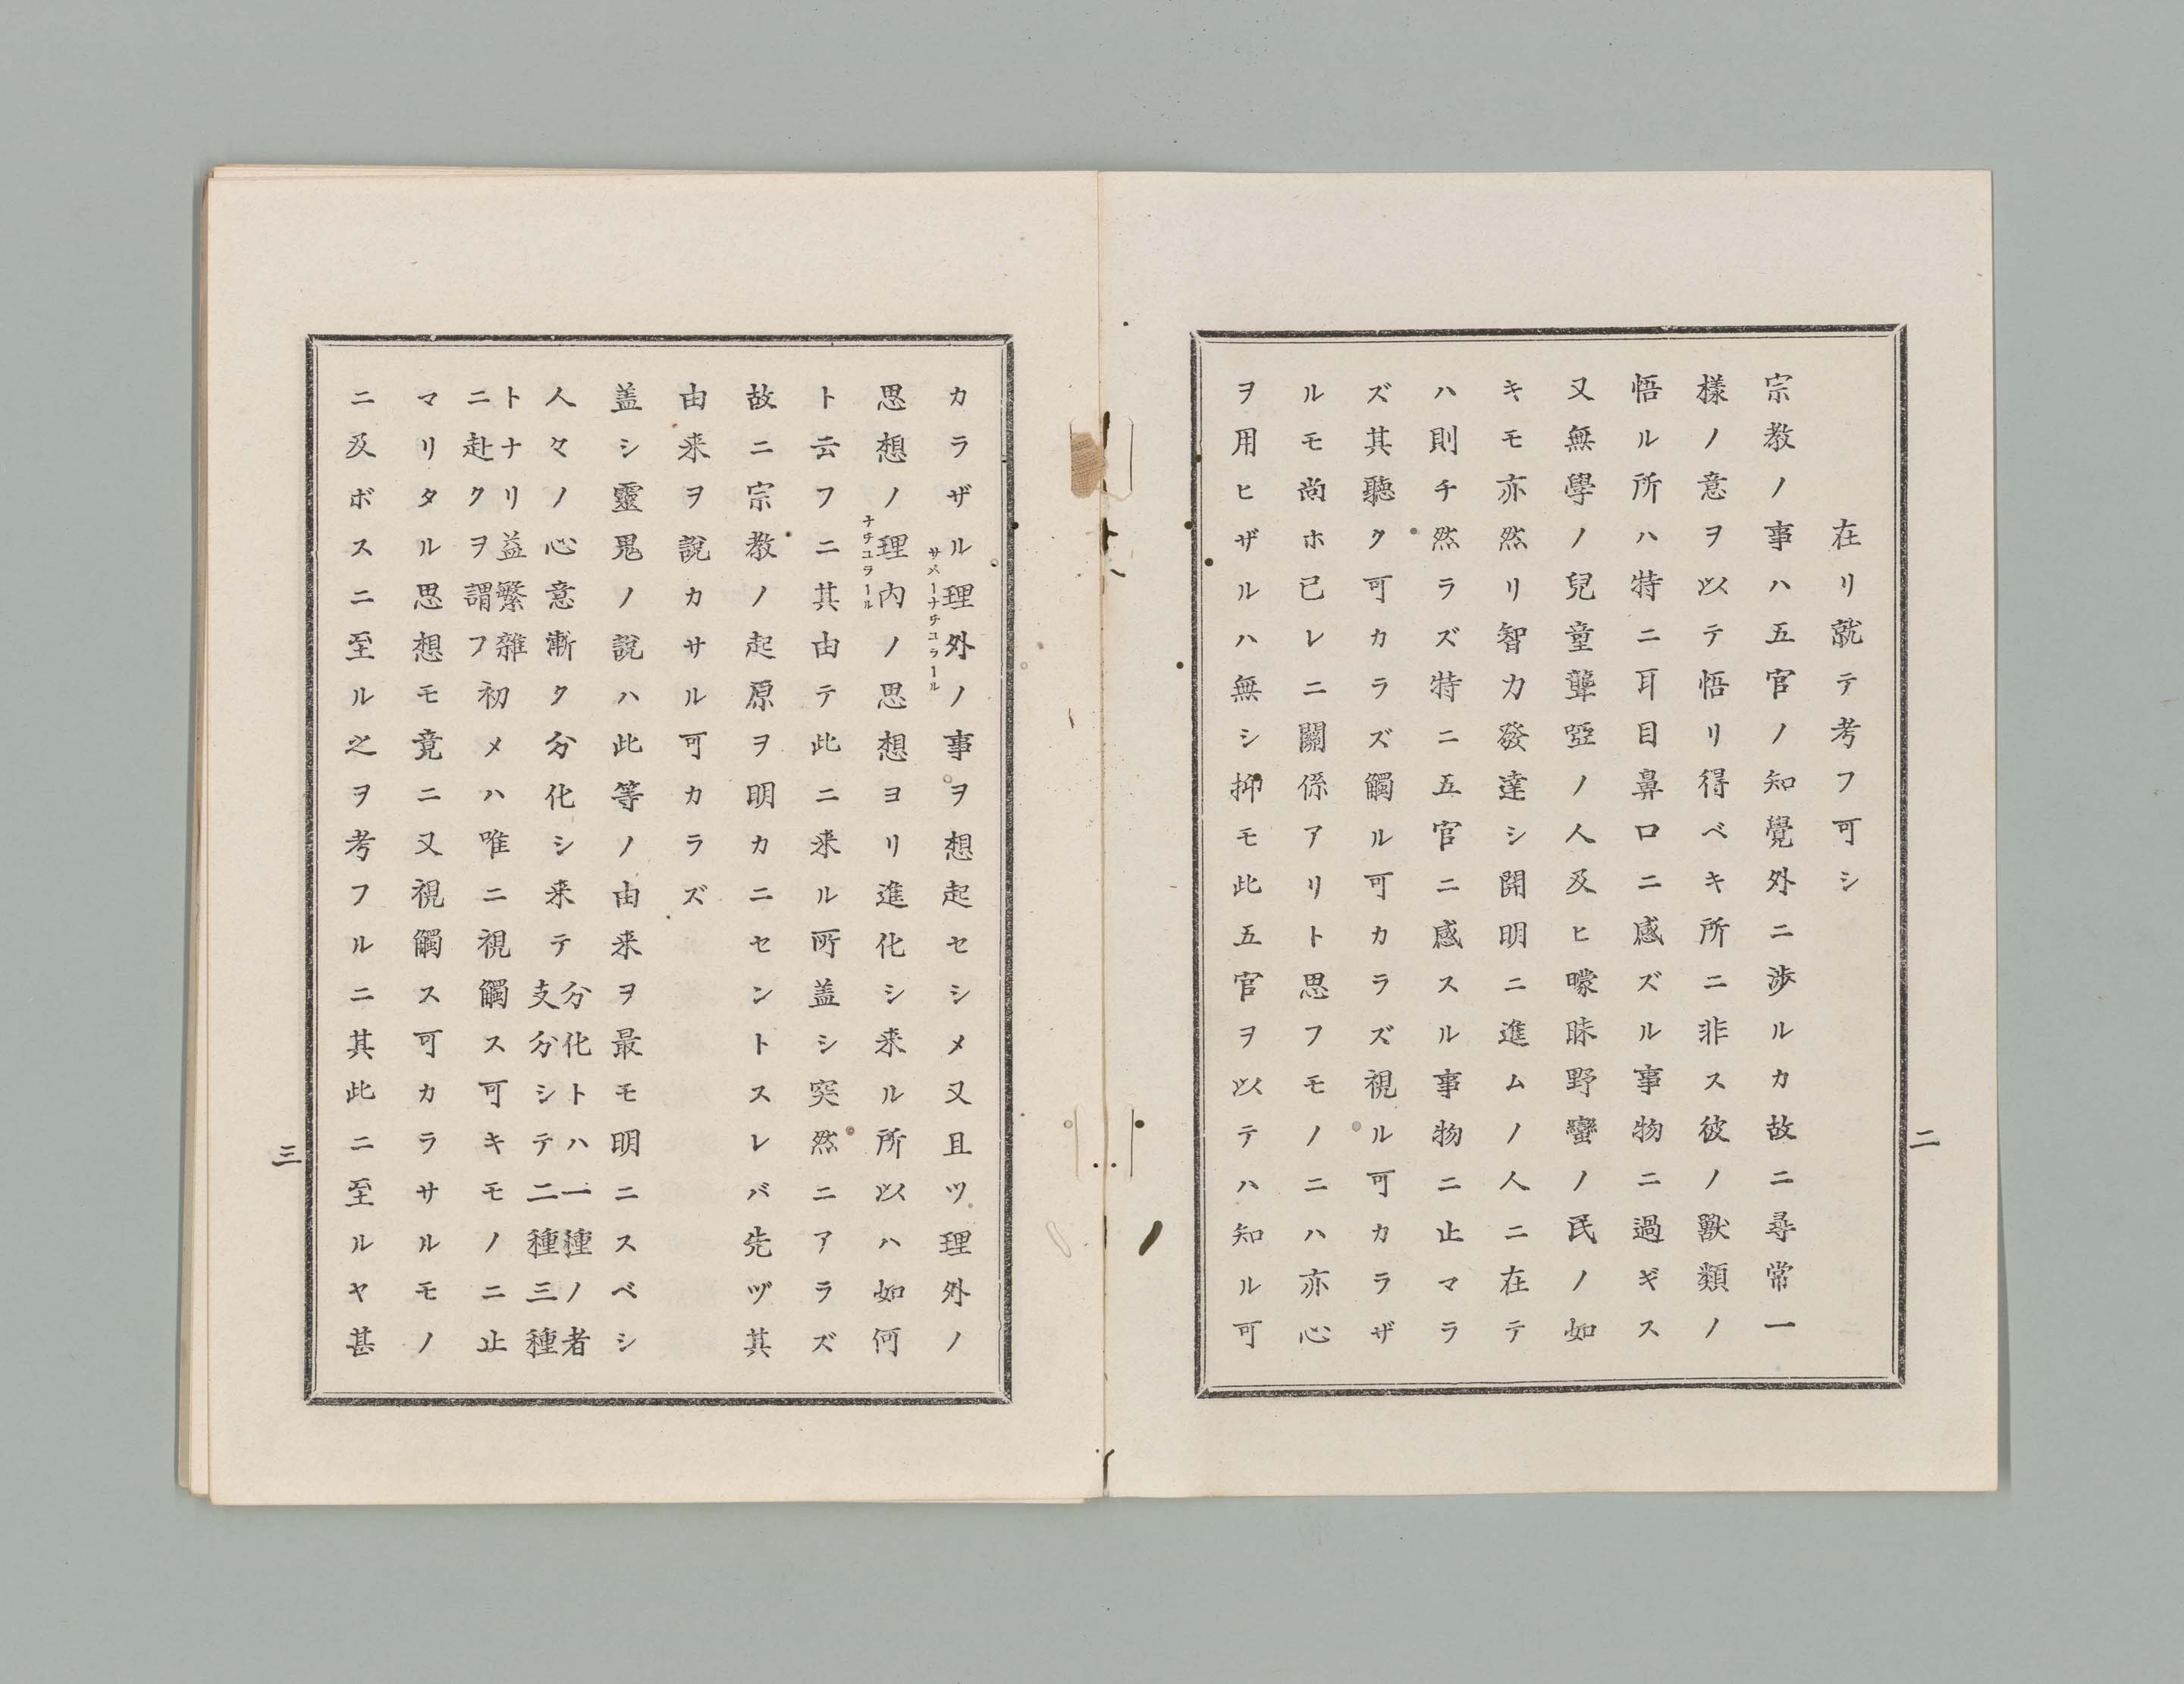 在リ就テ考フ可シ
宗教ノ事ハ五官ノ知覺外ニ渉ルカ故ニ尋常一
樣ノ意ヲ以テ悟リ得ベキ所ニ非ス彼ノ獸類ノ
悟ル所ハ特ニ耳目鼻口ニ感ズル事物ニ過ギス
又無學ノ兒童聾啞ノ人及ヒ曚昧野蠻ノ民ノ如
キモ亦然リ智力發達シ開明ニ進ムノ人ニ在テ
ハ則チ然ラズ特ニ五官ニ感スル事物ニ止マラ
ズ其聽ク可カラズ觸ル可カラズ視ル可カラザ
ルモ尚ホ已レニ關係アリト思フモノニハ亦心
ヲ用ヒザルハ無シ抑モ此五官ヲ以テハ知ル可
二
カラザル理外ノ事ヲ想起セシメ又且ツ理外ノ
サメーナチユラール
思想ノ理内ノ思想ヨリ進化シ来ル所以ハ如何
ナチユラール
ト云フニ其由テ此ニ来ル所盖シ突然ニアラズ
故ニ宗教ノ起原ヲ明カニセントスレバ先ヅ其
由来ヲ說カサル可カラズ
盖シ靈鬼ノ說ハ此等ノ由来ヲ最モ明ニスベシ
人々ノ心意漸ク分化シ来テ
分化トハ一種ノ者
支分シテ二種三種
トナリ益繁雜
ニ赴クヲ謂フ
初メハ唯ニ視觸ス可キモノニ止
マリタル思想モ竟ニ又視觸ス可カラサルモノ
ニ及ボスニ至ル之ヲ考フルニ其此ニ至ルヤ甚
三